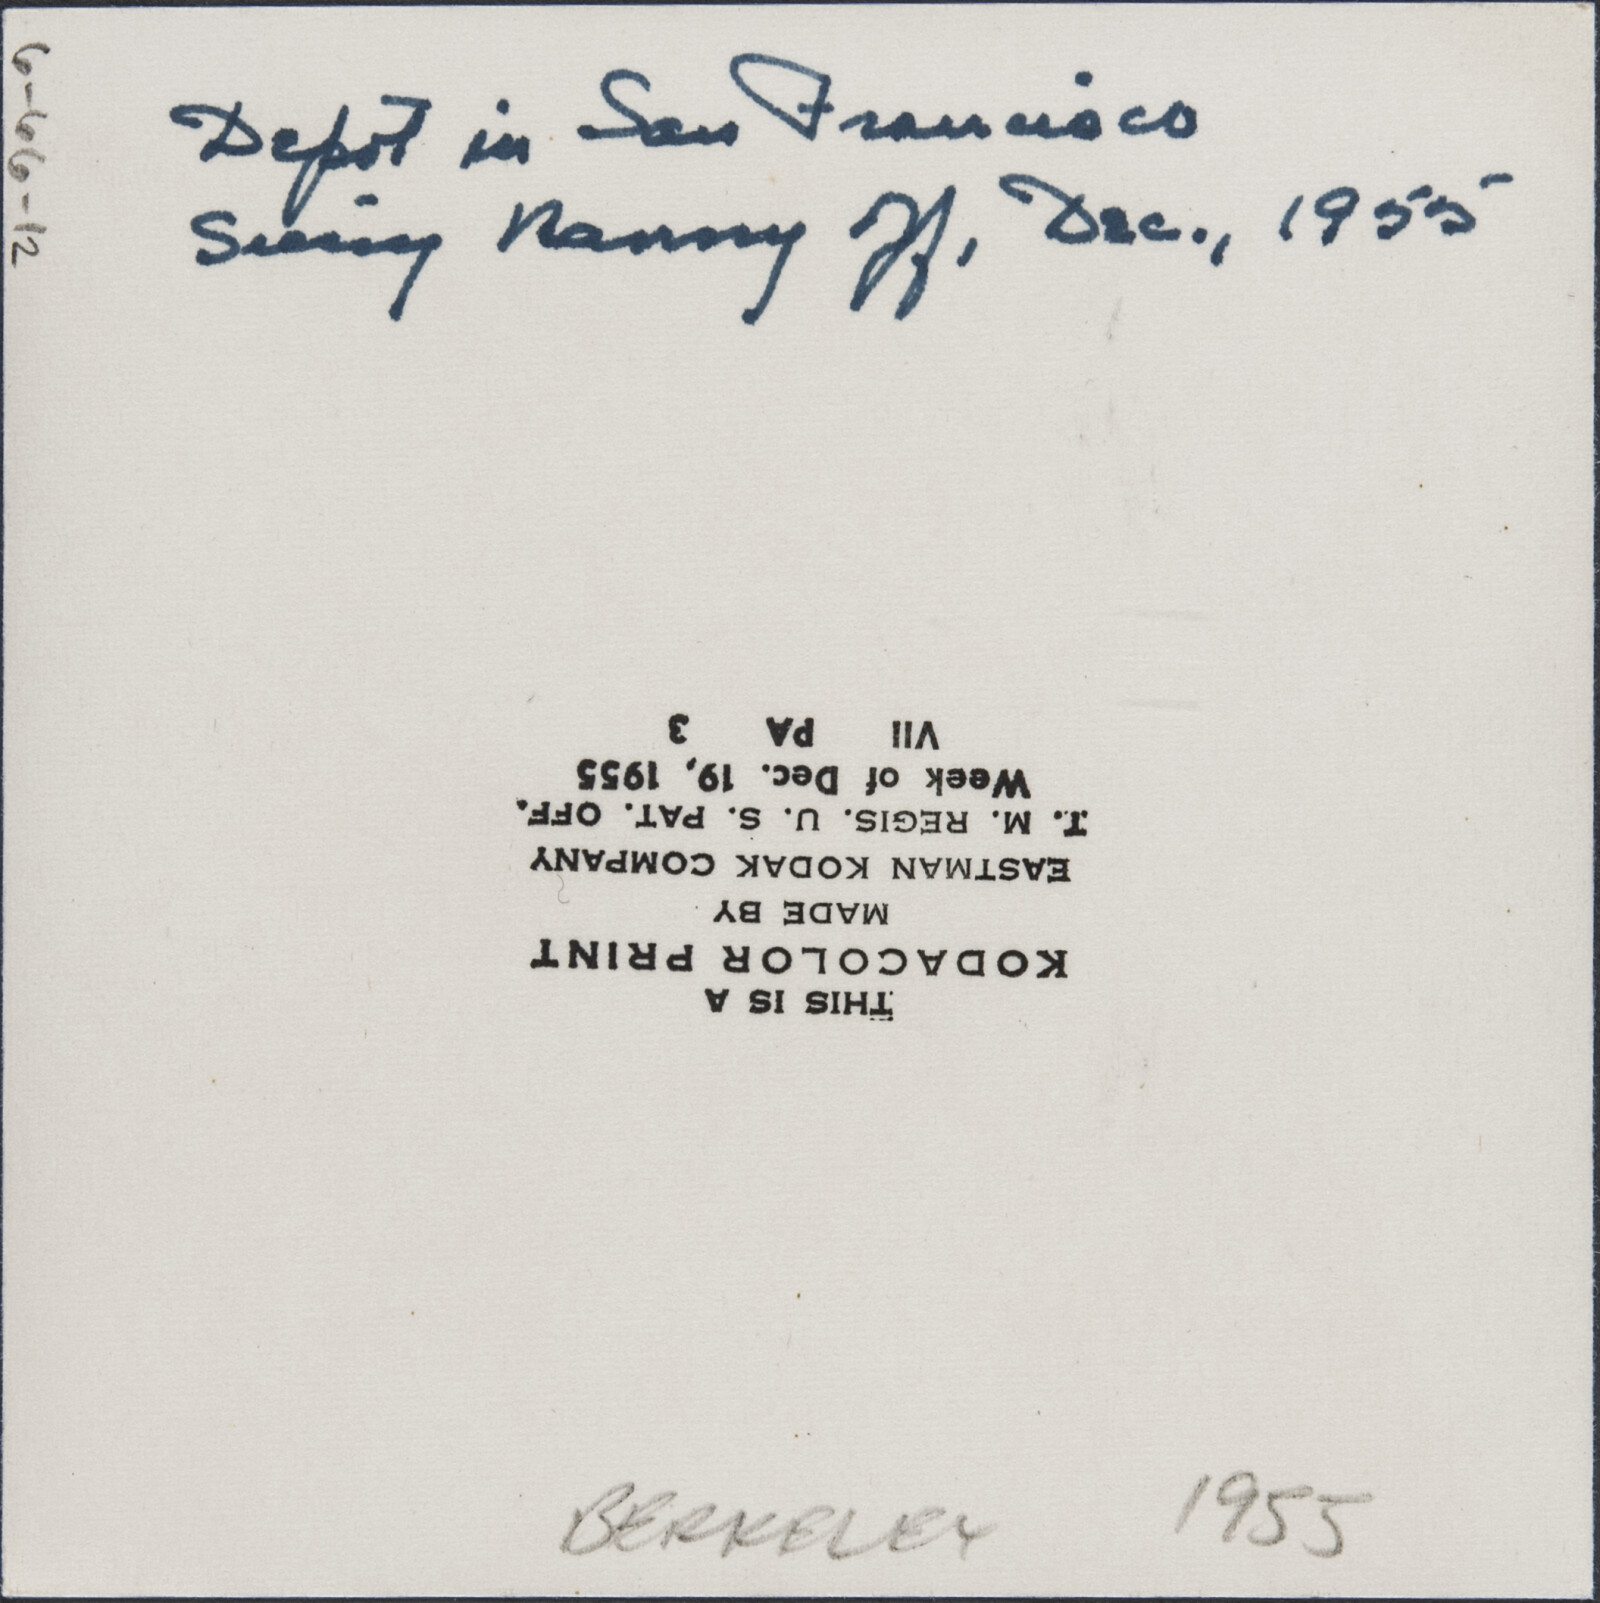 6-66-12
Depot in San Francisco
Seeing Nanny off, Dec., 1955
THIS IS A
KODACOLOR PRINT
MADE BY
EASTMAN KODAK COMPANY
T. M. REGIS. U. S. PAT. OFF.
Week of Dec. 19, 1955
VII PA 3
BERKELEY 1955